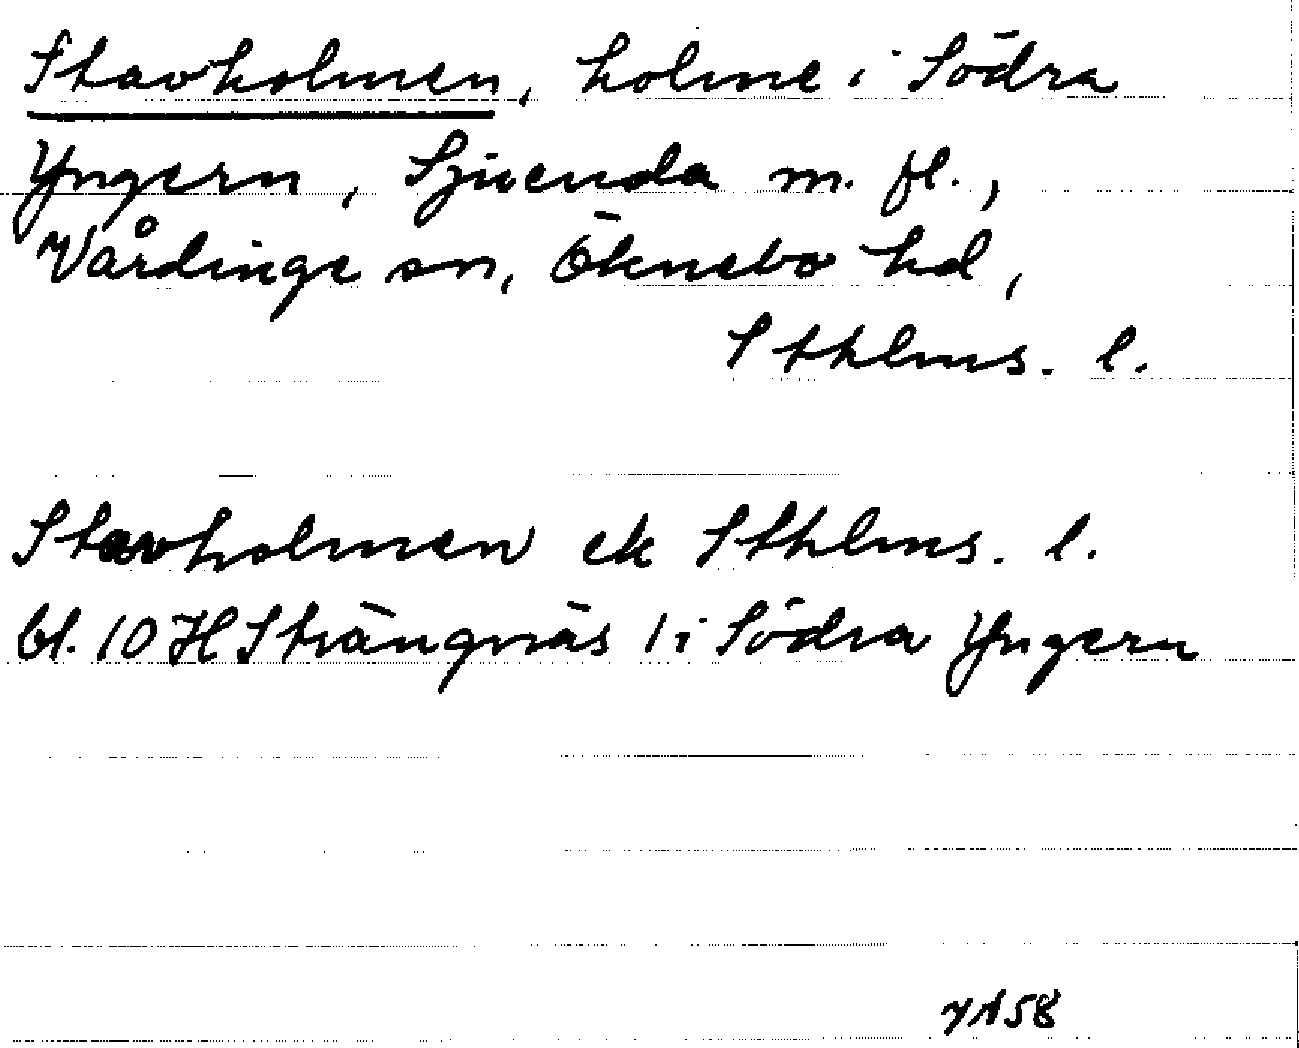 Stavholmen, holme i Södra
Yngern, Sjuenda m. fl.,
Vårdinge sn, Öknebo hd,
Sthlms. l.
Stavholmen ek Sthlms. l.
bl. 10 H Strängnäs 1 i Södra Yngern
58